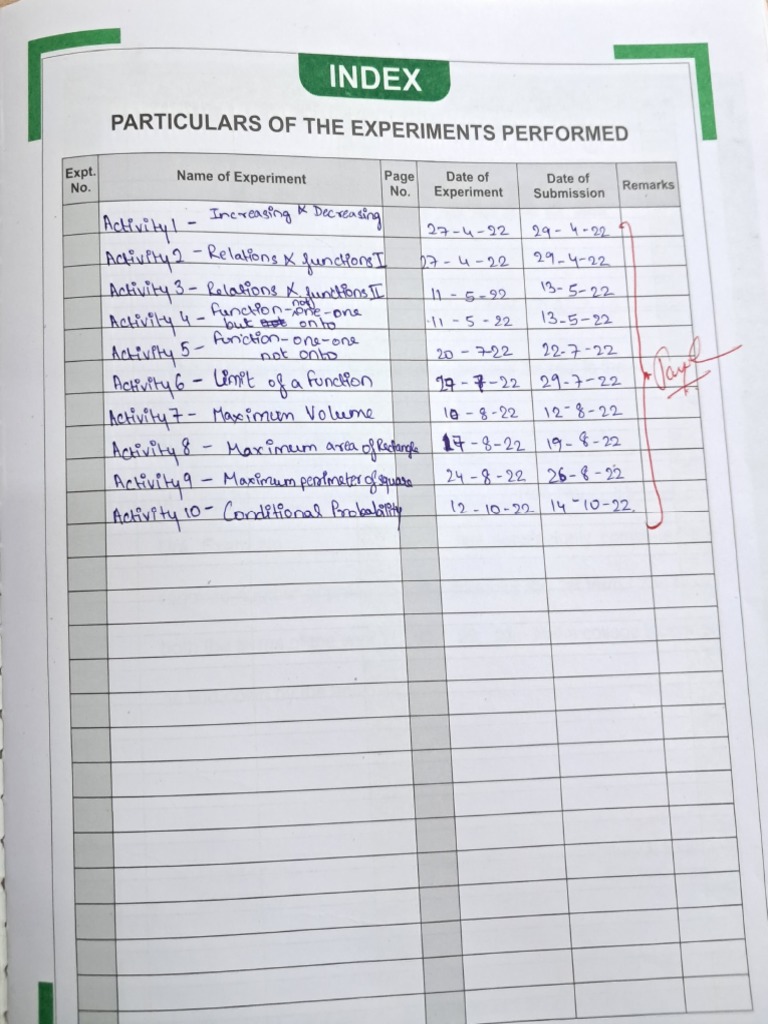 INDEX
PARTICULARS OF THE EXPERIMENTS PERFORMED
Expt. No. Name of Experiment Page No. Date of Experiment Date of Submission Remarks
Activity 1 - Increasing & Decreasing 27-4-22 29-4-22
Activity 2 - Relations & functions I 27-4-22 29-4-22
Activity 3 - Relations & functions II 11-5-22 13-5-22
Activity 4 - Function - not one-one but onto 11-5-22 13-5-22
Activity 5 - Function - one-one not onto 20-7-22 22-7-22
Activity 6 - Limit of a function 27-7-22 29-7-22
Activity 7 - Maximum Volume 10-8-22 12-8-22
Activity 8 - Maximum area of Rectangle 17-8-22 19-8-22
Activity 9 - Maximum perimeter of square 24-8-22 26-8-22
Activity 10 - Conditional Probability 12-10-22 14-10-22